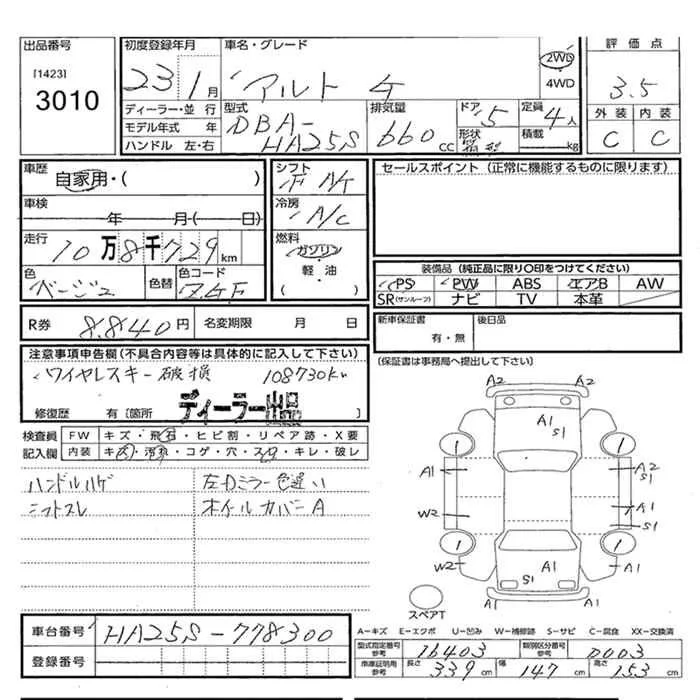 出品番号
[1423]
3010
初度登録年月
23 1月
車名・グレード
アルト G
2WD
4WD
評価点
3.5
ディーラー・並行
モデル年式 年
ハンドル 左・右
型式
DBA-
HA25S
排気量
660 cc
ドア
5
形状
箱型
定員
4人
積載
kg
外装 内装
C C
車歴
自家用・( )
車検
年 月( 日)
走行
10万8千729km
色
ベージュ
色替
色コード
ZGF
シフト
F A/T
冷房
A/C
燃料
ガソリン
・軽・油
( )
セールスポイント (正常に機能するものに限ります)
装備品 (純正品に限り〇印をつけてください)
PS PW ABS エアB AW
SR(サンルーフ) ナビ TV 本革
R券 8,840円 名変期限 月 日
新車保証書
有・無
後日品
(保証書は事務局へ提出して下さい)
注意事項申告欄(不具合内容等は具体的に記入して下さい)
ワイヤレスキー破損 108730km
修復歴 有〔箇所 〕
ディーラー出品
検査員
記入欄
FW キズ・飛石・ヒビ割・リペア跡・X要
内装 キズ・汚れ・コゲ・穴・スレ・キレ・破レ
ハンドルハゲ 左Dミラー色違い
シフトスレ ホイールカバーA
A2 A2
A1
S1
1 1
A1 A2
S1
W2 A1
S1
1 1
W2 A1
S1 A1
A1
スペアT
車台番号 HA25S-778300
登録番号
A-キズ E-エクボ U-凹み W-補修跡 S-サビ C-腐食 XX-交換済
型式指定番号
参考
16403
類別区分番号
参考
0003
車庫証明用
参考
長さ 339cm 幅 147cm 高さ 153cm